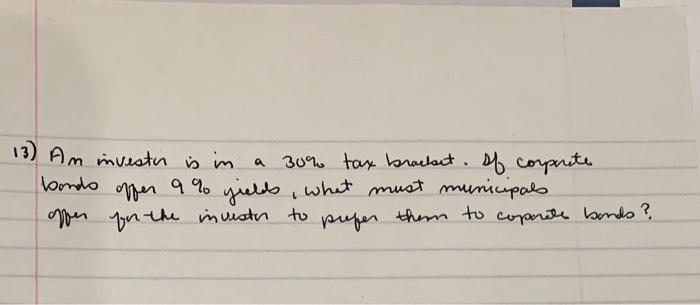 13) An investor is in a 30% tax bracket. If corporate
bonds offer 9% yields, what must municipals
offer for the investor to prefer them to coporate bonds?